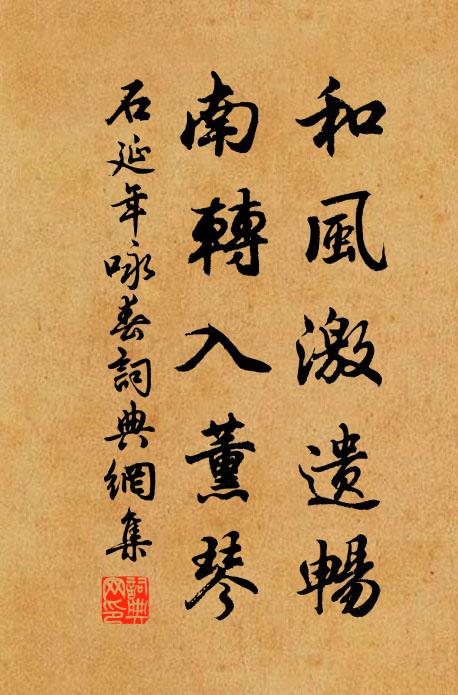 和風激遺暢
南轉入薰琴
石延年咏春詞典網集
詞典網印